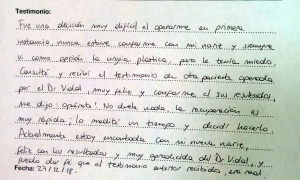 Testimonio:
Fue una decisión muy difícil el operarme en primera
instancia, nunca estuve conforme con mi nariz y siempre
vi como opción la cirugía plástica, pero le tenía miedo.
Consulté y recibí el testimonio de otra paciente operada
por el Dr Vidal, muy feliz y conforme al sus resultados,
me dijo: ¡opérate! No duele nada la recuperación es
muy rápida; lo medité un tiempo y decidí hacerlo.
Actualmente estoy encantada con mi nueva nariz,
feliz con los resultados y muy agradecida del Dr Vidal, y
puedo dar fé que el testimonio anterior recibido, era real.
Fecha: 27/12/18.